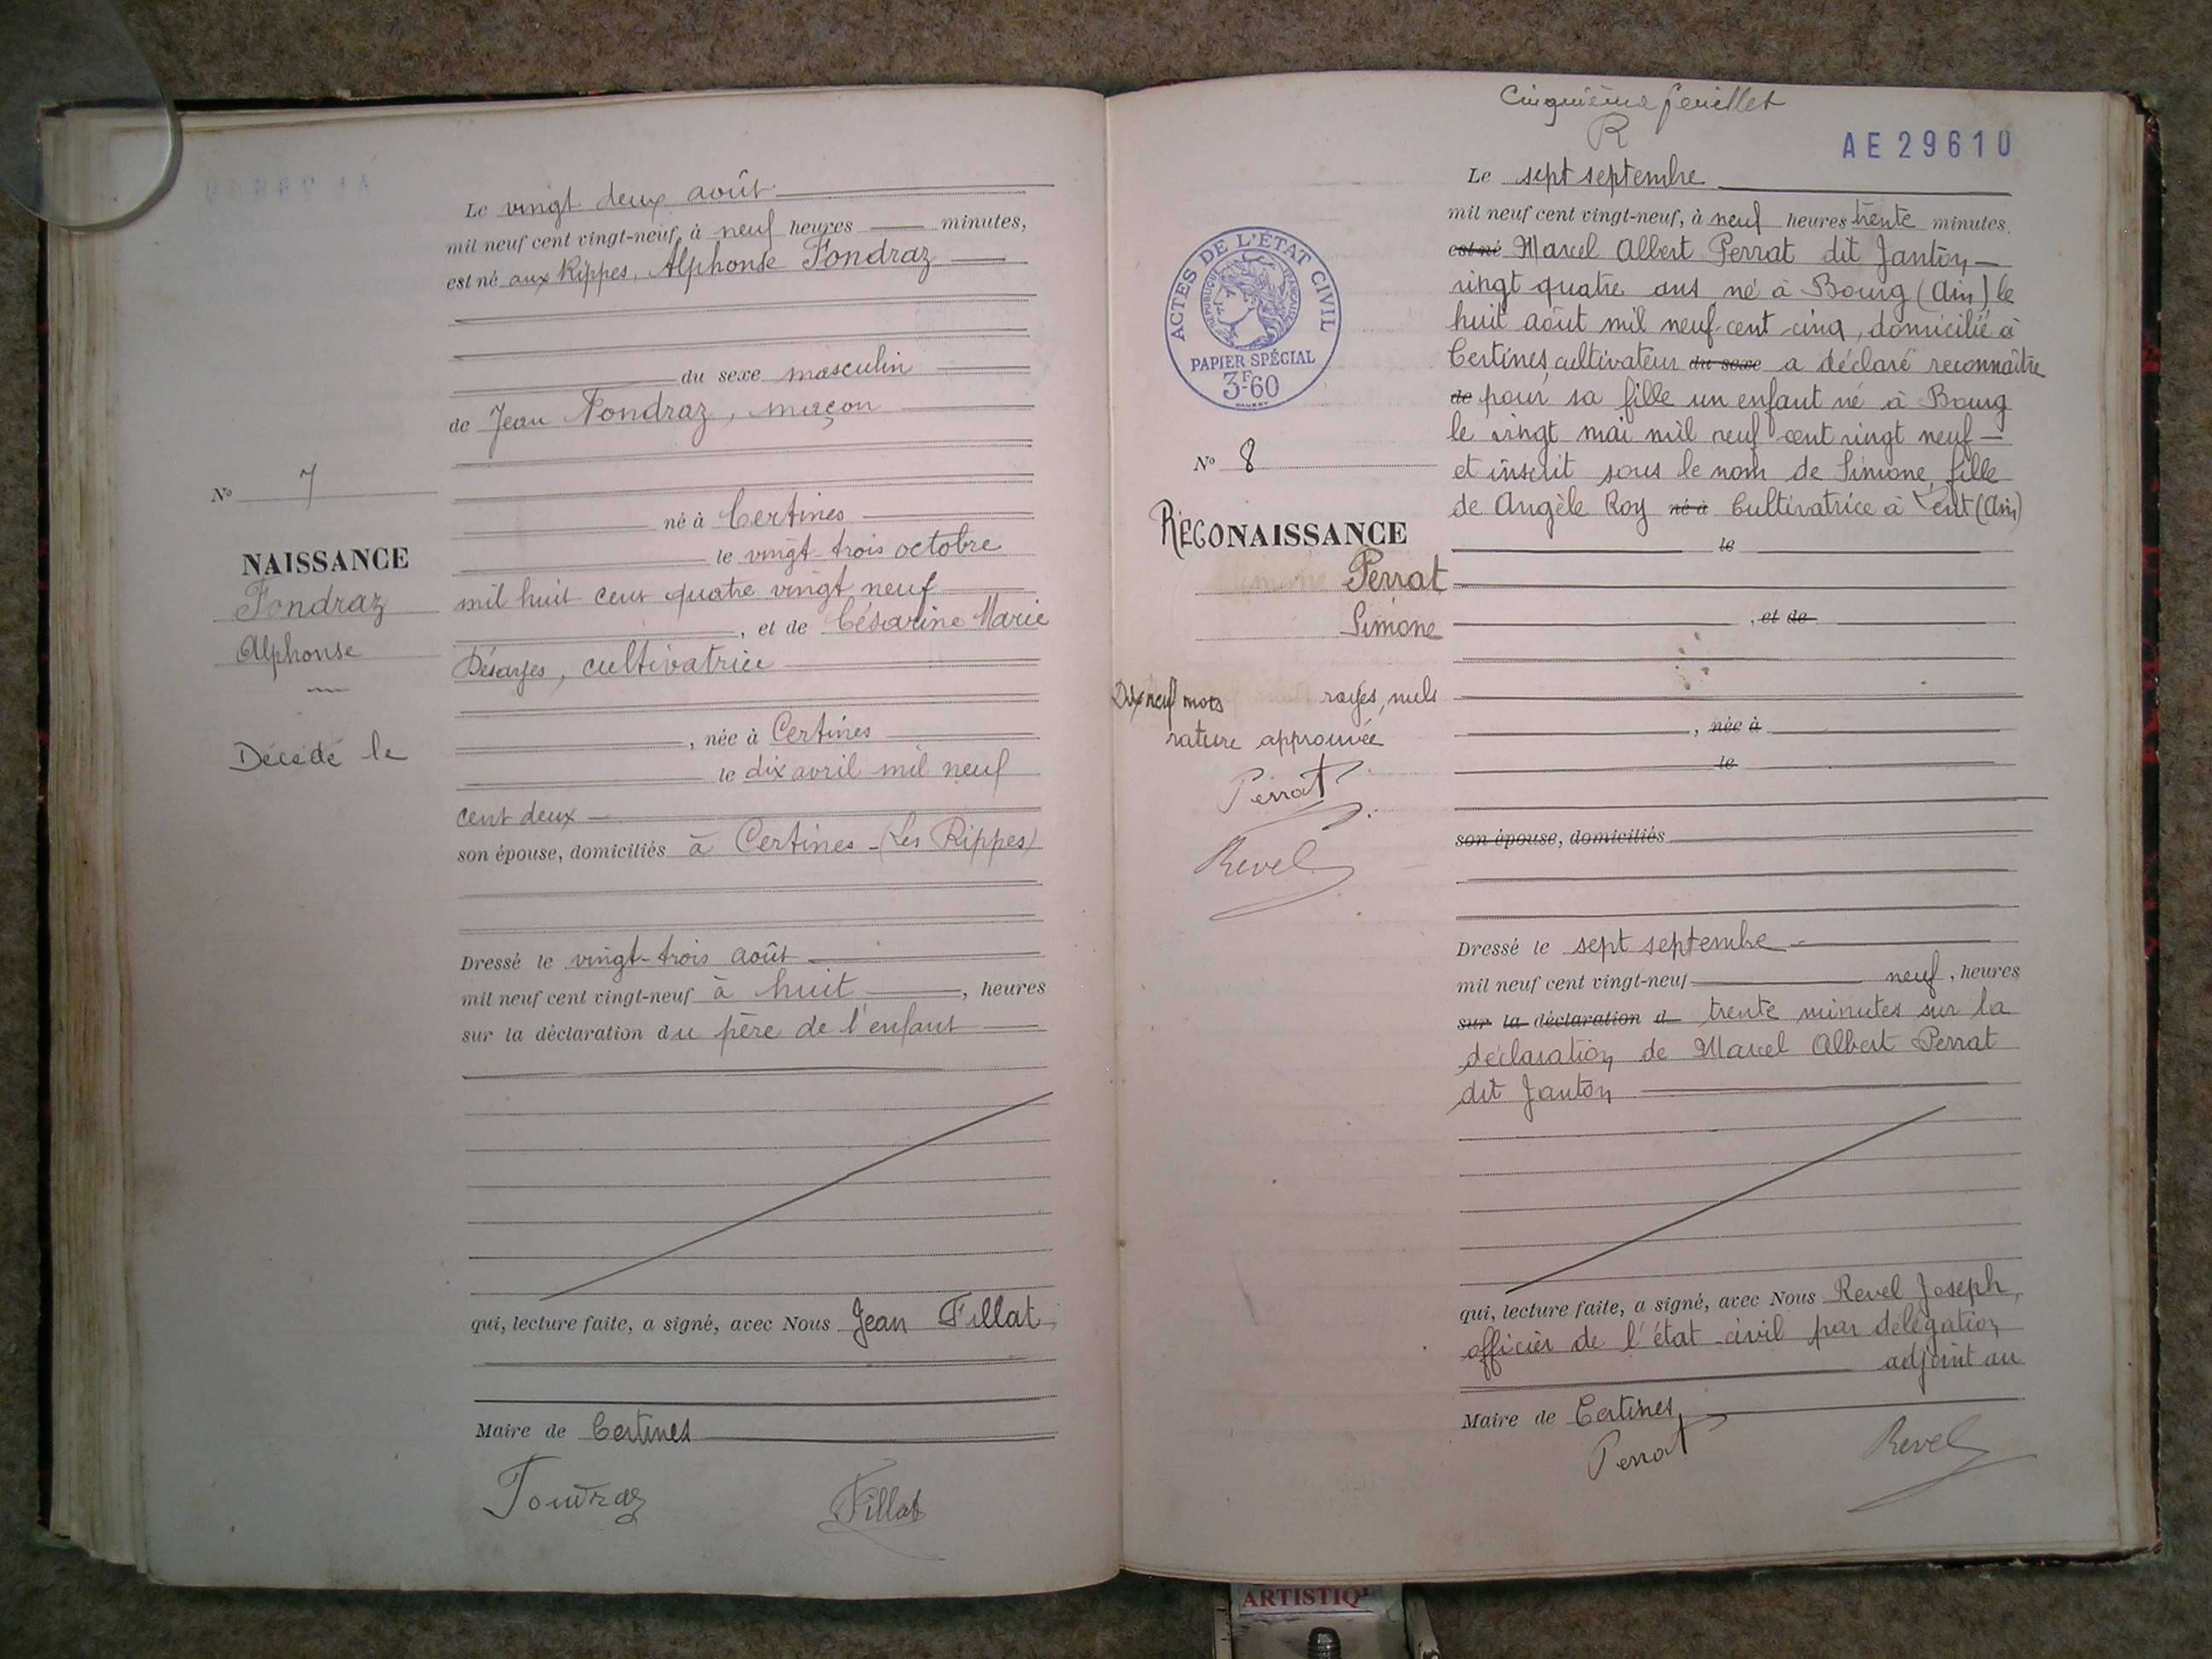 Le vingt deux août
mil neuf cent vingt-neuf, à neuf heures minutes,
est né aux Rippes, Alphonse Fondraz
du sexe masculin
de Jean Fondraz, maçon
né à Certines
le vingt-trois octobre
mil huit cent quatre vingt neuf
, et de Césarine Marie
cultivatrice
, née à Certines
le dix avril mil neuf
cent deux
son épouse, domiciliés à Certines (Les Rippes)
Dressé le vingt-trois août
mil neuf cent vingt-neuf à huit , heures
sur la déclaration du père de l'enfant
qui, lecture faite, a signé, avec Nous Jean Fillat
Maire de Certines
Fondraz Fillat
N° 7
NAISSANCE
Fondraz
Alphonse
Décédé le
Cinquième feuillet
R
AE 29610
ACTES DE L'ÉTAT CIVIL
RÉPUBLIQUE FRANÇAISE
PAPIER SPÉCIAL
3F60
N° 8
RECONAISSANCE
Perrat
Simone
Dix neuf mots rayés, nuls
rature approuvée
Perrat
Revel
Le sept septembre
mil neuf cent vingt-neuf, à neuf heures trente minutes.
est né Marcel Albert Perrat dit Janton
vingt quatre ans né à Bourg (Ain) le
huit août mil neuf cent cinq, domicilié à
Certines cultivateur du sexe a déclaré reconnaître
de pour sa fille un enfant né à Bourg
le vingt mai mil neuf cent vingt neuf
et inscrit sous le nom de Simone, fille
de Angèle Roy né à Cultivatrice à Lent (Ain)
le
, et de
, née à
le
son épouse, domiciliés
Dressé le sept septembre
mil neuf cent vingt-neuf neuf, heures
sur la déclaration d trente minutes sur la
déclaration de Marcel Albert Perrat
dit Janton
qui, lecture faite, a signé, avec Nous Revel Joseph,
officier de l'état-civil par délégation
adjoint au
Maire de Certines
Perrat Revel
ARTISTIQ